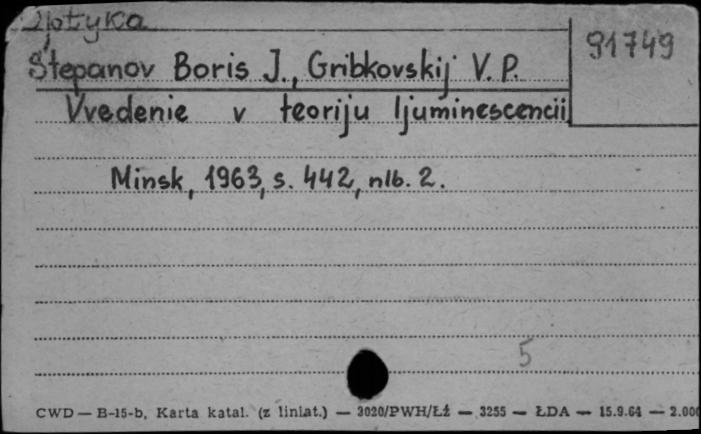 Optyka
91749
Stepanov Boris J., Gribkovskij V. P.
Vvedenie v teoriju ljuminescencii
Minsk, 1963, s. 442, nlb. 2.
5
CWD — B-15-b, Karta katal. (z liniat.) — 3020/PWH/Łź — 3255 — ŁDA — 15.9.64 — 2.000